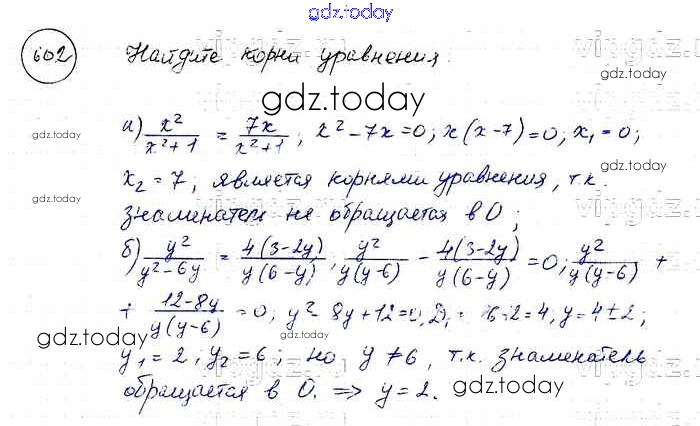 gdz.today
602
Найдите корни уравнения.
vipgdz.ru
gdz.today
gdz.today
а) x²/(x²+1) = 7x/(x²+1); x²-7x=0; x(x-7)=0; x₁=0;
x₂=7; является корнями уравнения, т.к.
gdz.today
знаменатель не обращается в 0;
б) y²/(y²-6y) = 4(3-2y)/(y(6-y)); y²/(y(y-6)) - 4(3-2y)/(y(6-y)) = 0; y²/(y(y-6)) +
+ (12-8y)/(y(y-6)) = 0; y²-8y+12=0; D₁= 16-12=4, y=4±2;
gdz.today
y₁=2, y₂=6; но y≠6, т.к. знаменатель
обращается в 0. ⇒ y=2.
gdz.today